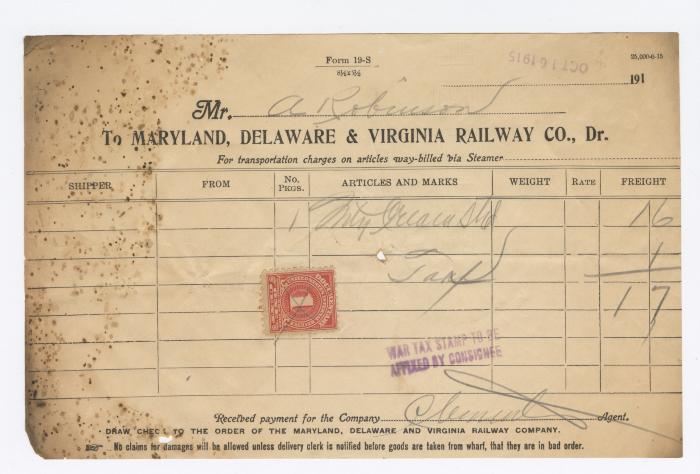 Form 19-S
8½x5½
25,000-6-15
OCT 16 1915
191
Mr. A Robinson
To MARYLAND, DELAWARE & VIRGINIA RAILWAY CO., Dr.
For transportation charges on articles way-billed via Steamer
SHIPPER FROM No. PKGS. ARTICLES AND MARKS WEIGHT RATE FREIGHT
1 16
Tax 1
17
WAR TAX STAMP TO BE
AFFIXED BY CONSIGNEE
Received payment for the Company Agent.
DRAW CHECK TO THE ORDER OF THE MARYLAND, DELAWARE AND VIRGINIA RAILWAY COMPANY.
No claims for damages will be allowed unless delivery clerk is notified before goods are taken from wharf, that they are in bad order.